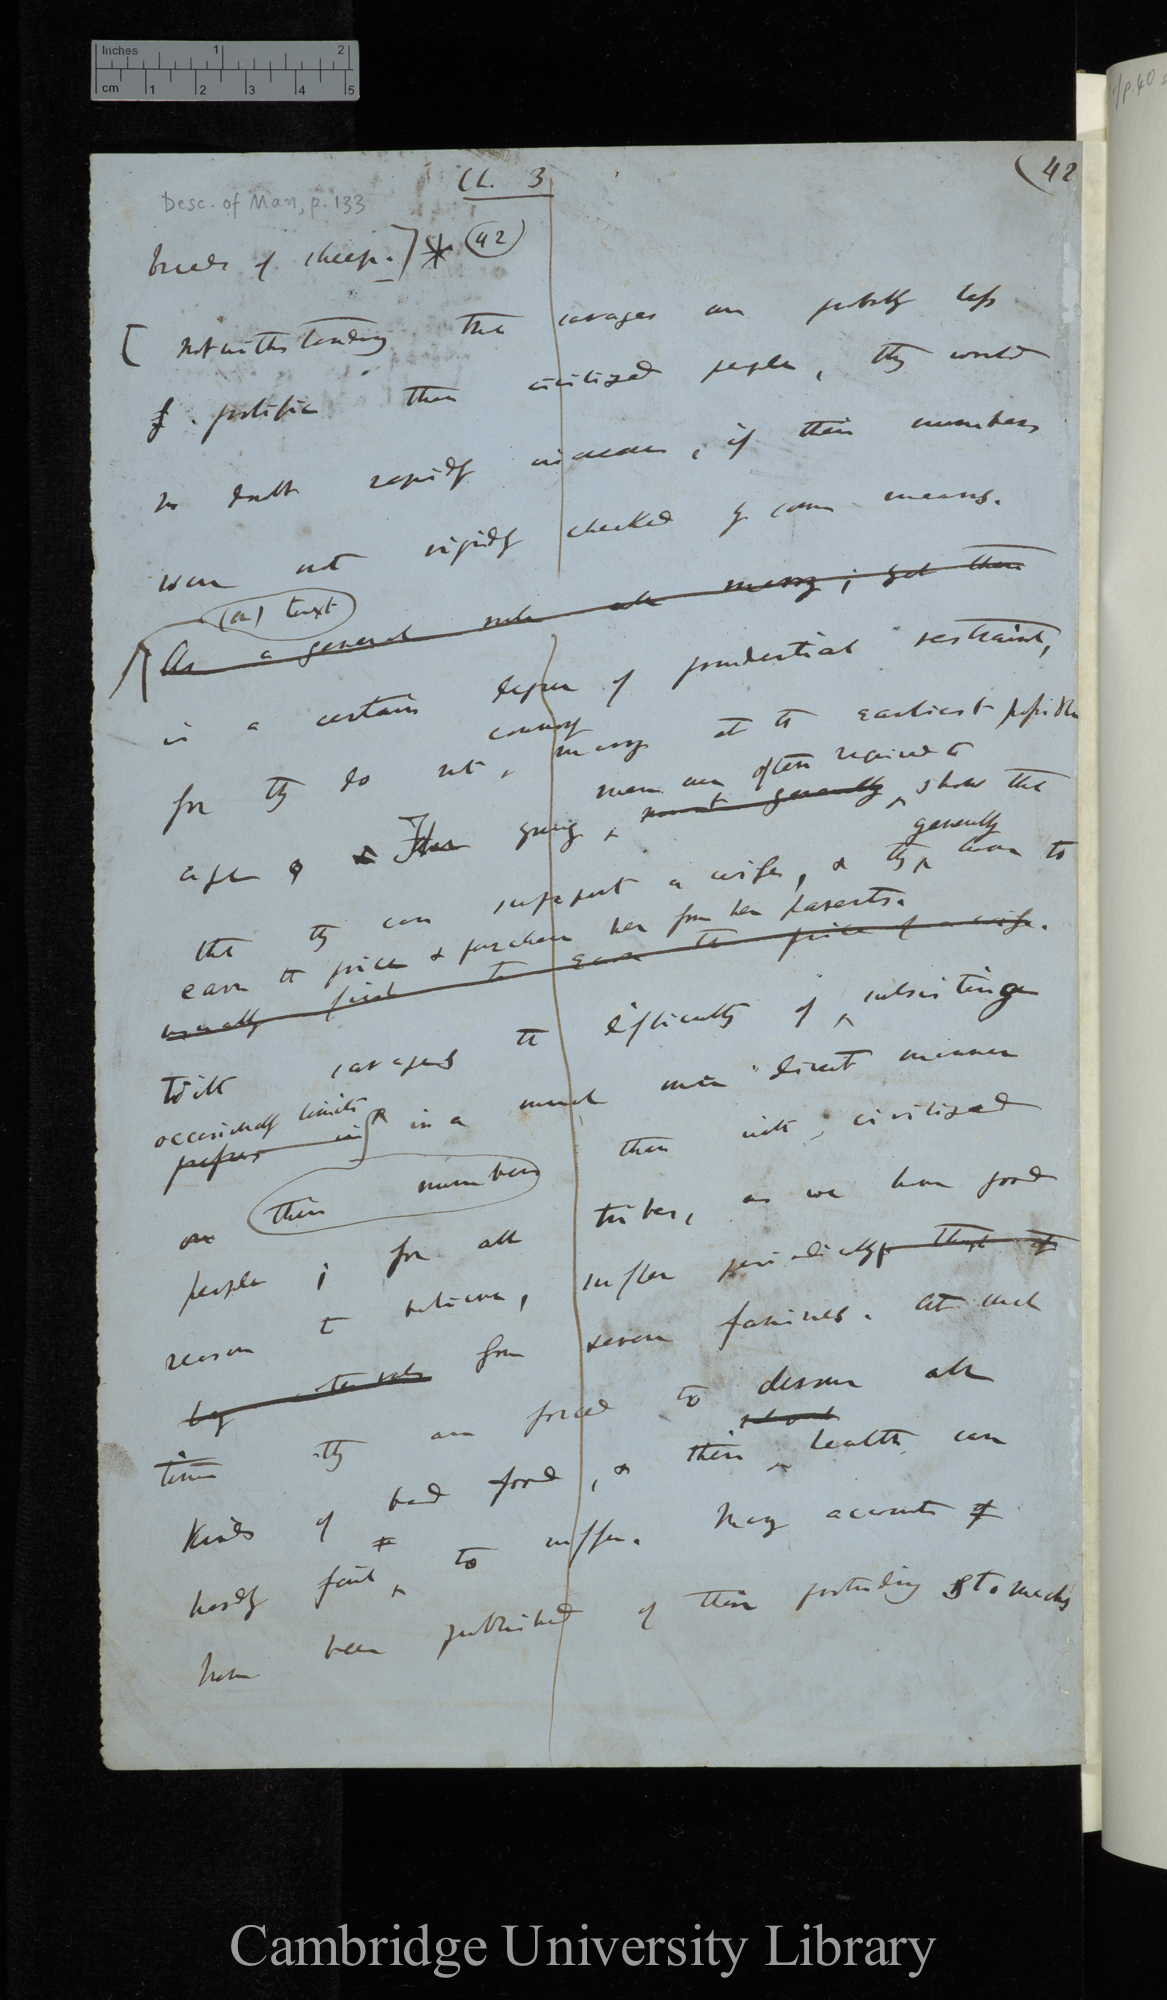 Inches 1 2
cm 1 2 3 4 5
Ch. 3
(42
Desc. of Man, p. 133
breeds of sheep.] * (42)
[ Notwithstanding that savages are probably less
prolific than civilized people, they would
no doubt rapidly increase, if their numbers
were not rigidly checked by some means.
(a) text
As a general rule all marry; yet there
is a certain degree of prudential restraint,
for they do not, commonly marry at the earliest possible
men are often required to
age & The young, must generally show that
generally
they can support a wife, & they have to
earn the price & purchase her from her parents.
usually first to earn the price of a wife.
With savages the difficulty of subsisting
occasionally limits
in a much more direct manner
their numbers than with civilized
people; for all tribes, as we have good
reason to believe, suffer periodically that at
by intervals from severe famines. At such
times they are forced to devour all
kinds of bad food, & their health can
hardly fail to suffer. Many accounts of
have been published of their protruding stomachs
Cambridge University Library